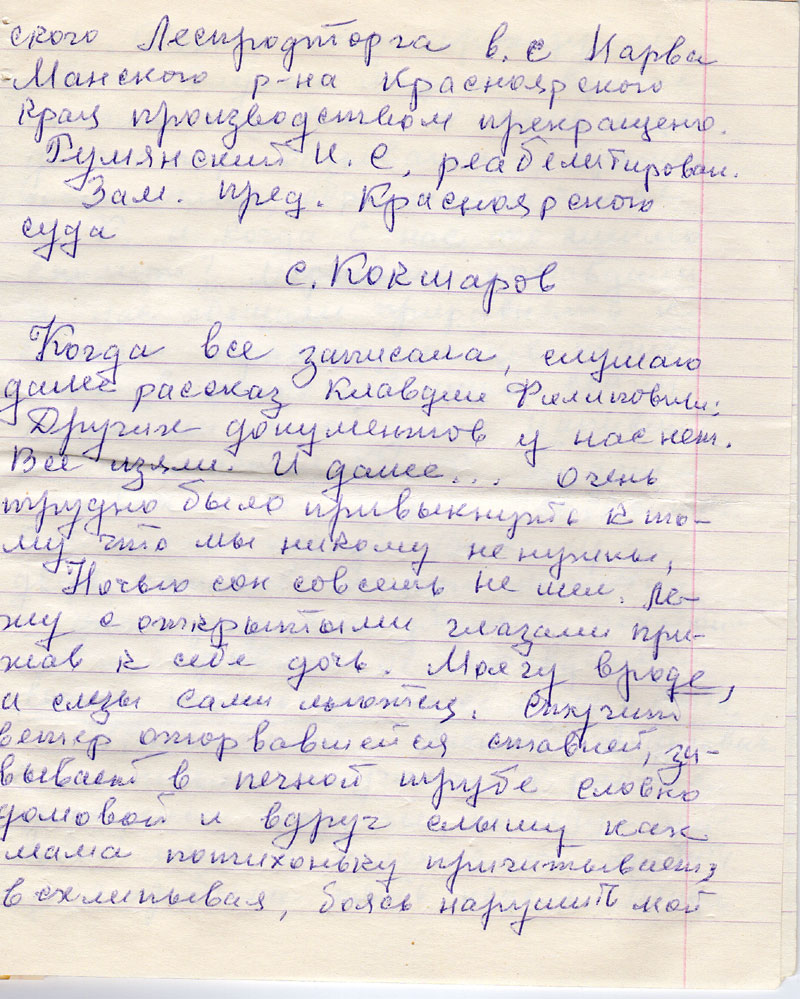 ского Леспродторга в. с Нарва
Манского р-на Красноярского
края производством прекращено.
Гумянский И. С, реабелитирован.
Зам. пред. Красноярского
суда
с. Кокшаров
Когда все записала, слушаю
далее рассказ Клавдии Филиповны:
Других документов у нас нет.
Все изяли. И далее... очень
трудно было привыкнуть к то-
му что мы никому ненужны,
Ночью сон совсем не шел. Ле-
жу с открытыми глазами при-
жав к себе дочь. Молчу вроде,
а слезы сами льются. Стучит
ветер оторвавшейся ставней, за-
вывает в печной трубе словно
домовой и вдруг слышу как
мама потихоньку причитывает,
всхлипывая, боясь нарушить мой